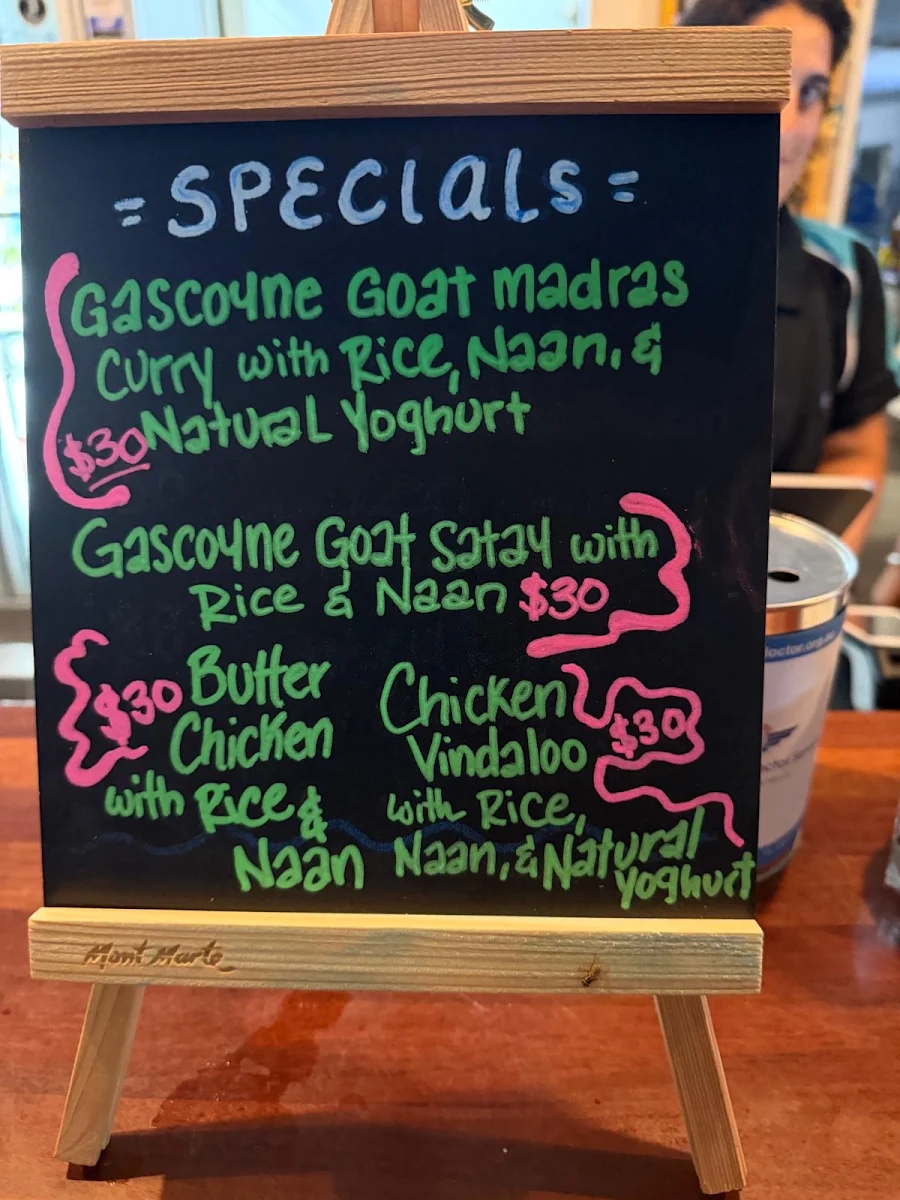 = SPECIALS =
Gascoyne Goat Madras
Curry with Rice, Naan, &
$30 Natural Yoghurt
Gascoyne Goat Satay with
Rice & Naan $30
$30 Butter
Chicken
with Rice &
Naan
Chicken
Vindaloo $30
with Rice,
Naan, & Natural
Yoghurt
Mont Marte
doctor.org.au